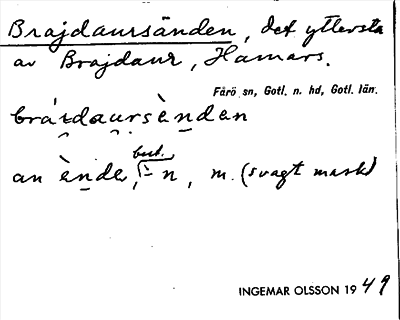 Brajdaursänden, det yttersta
av Brajdaur, Hamars.
Fårö sn, Gotl. n. hd, Gotl. län.
brá̄rdaursènden
best.
an ènde, -n, m. (svagt mask)
INGEMAR OLSSON 1949